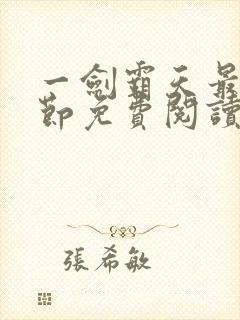 一劍霸天最
節免費閱讀
張希敏